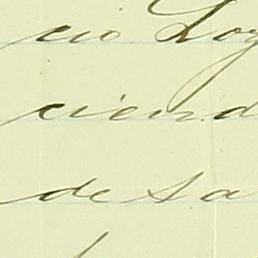 cio Log
ciend
de sa